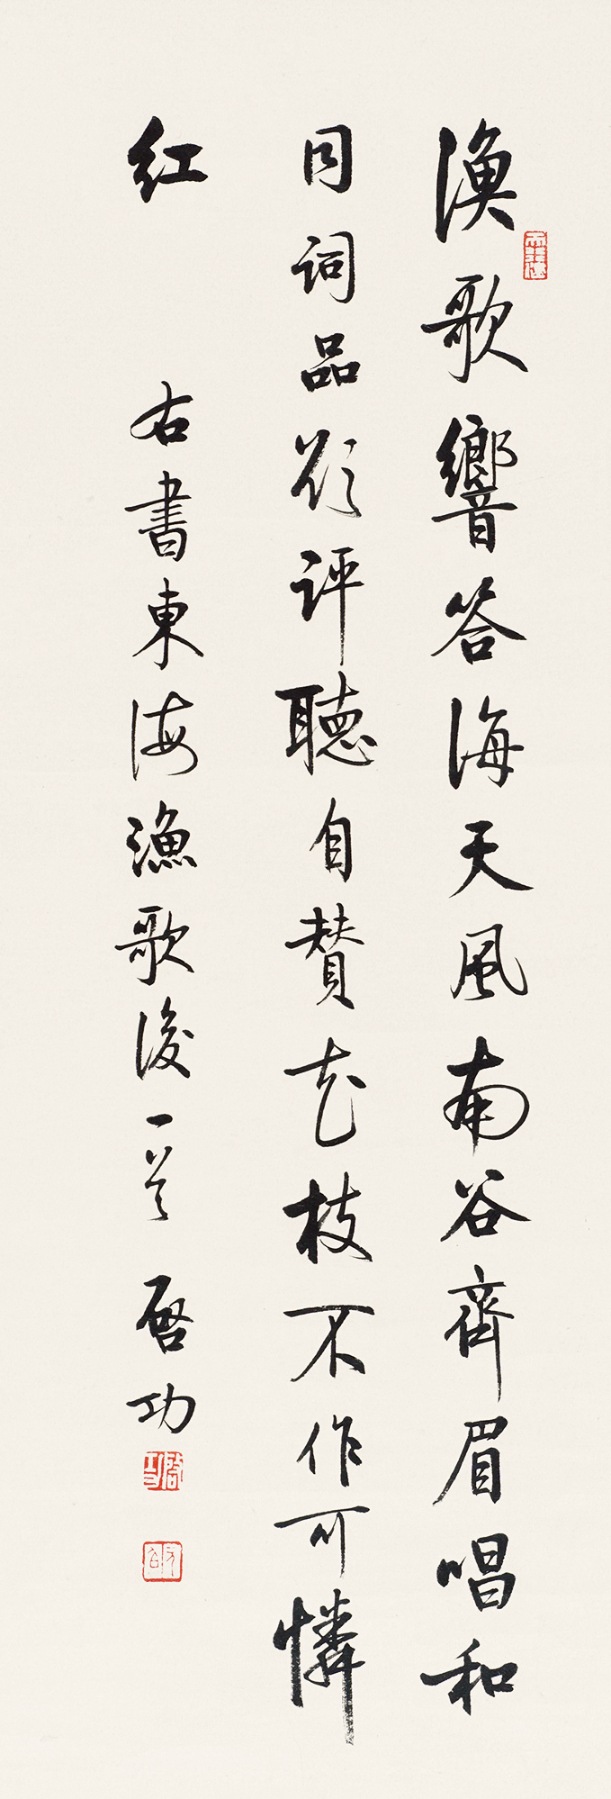 渔歌響答海天風南谷齊眉唱和
同词品欲评聽自贊花枝不作可憐
红
右書東海漁歌後一首 啓功
启功